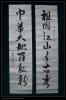 祖國江山千古秀
中華大地百花新